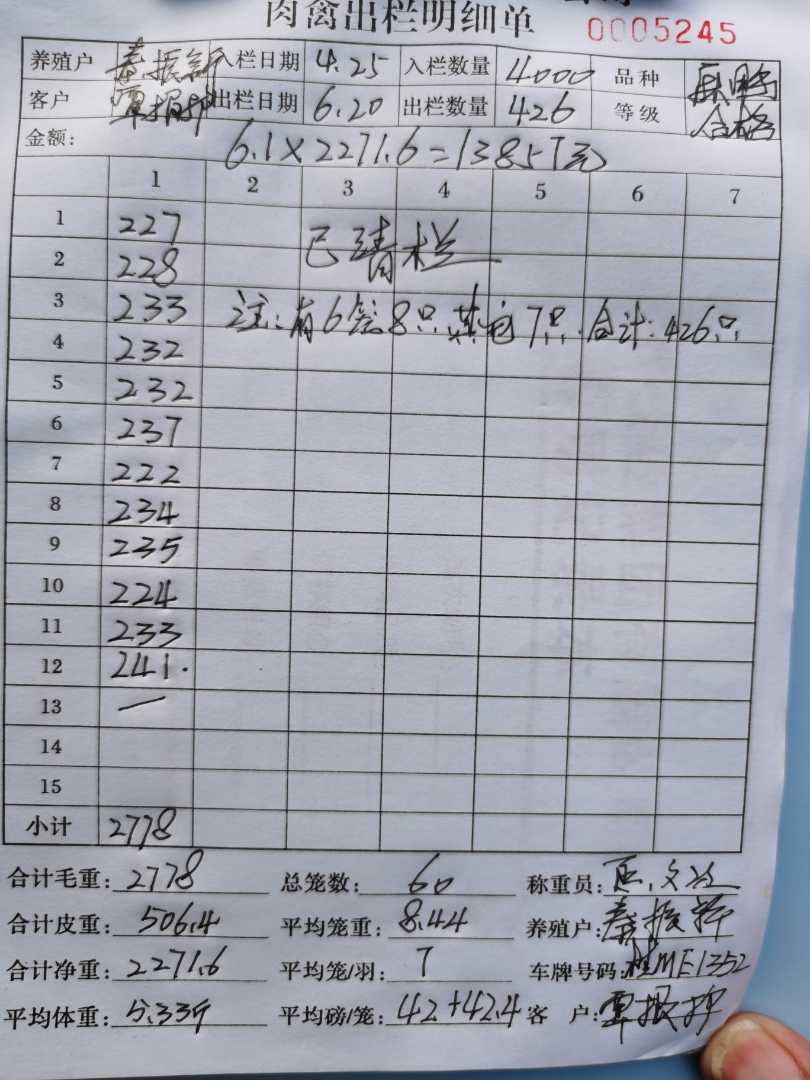 肉禽出栏明细单 0005245
养殖户 秦振新 入栏日期 4.25 入栏数量 4000 品种
客户 覃振 出栏日期 6.20 出栏数量 426 等级 合格
金额: 6.1×2271.6=13857元
1 2 3 4 5 6 7
1 227
2 228 已清栏
3 233 注:有6笼8只 其它7只. 合计:426只
4 232
5 232
6 237
7 222
8 234
9 235
10 224
11 233
12 241.
13 —
14
15
小计 2778
合计毛重: 2778 总笼数: 60 称重员:
合计皮重: 506.4 平均笼重: 8.44 养殖户: 秦振
合计净重: 2271.6 平均笼/羽: 7 车牌号码: 桂ME1352
平均体重: 5.33斤 平均磅/笼: 42+42.4 客 户: 覃振